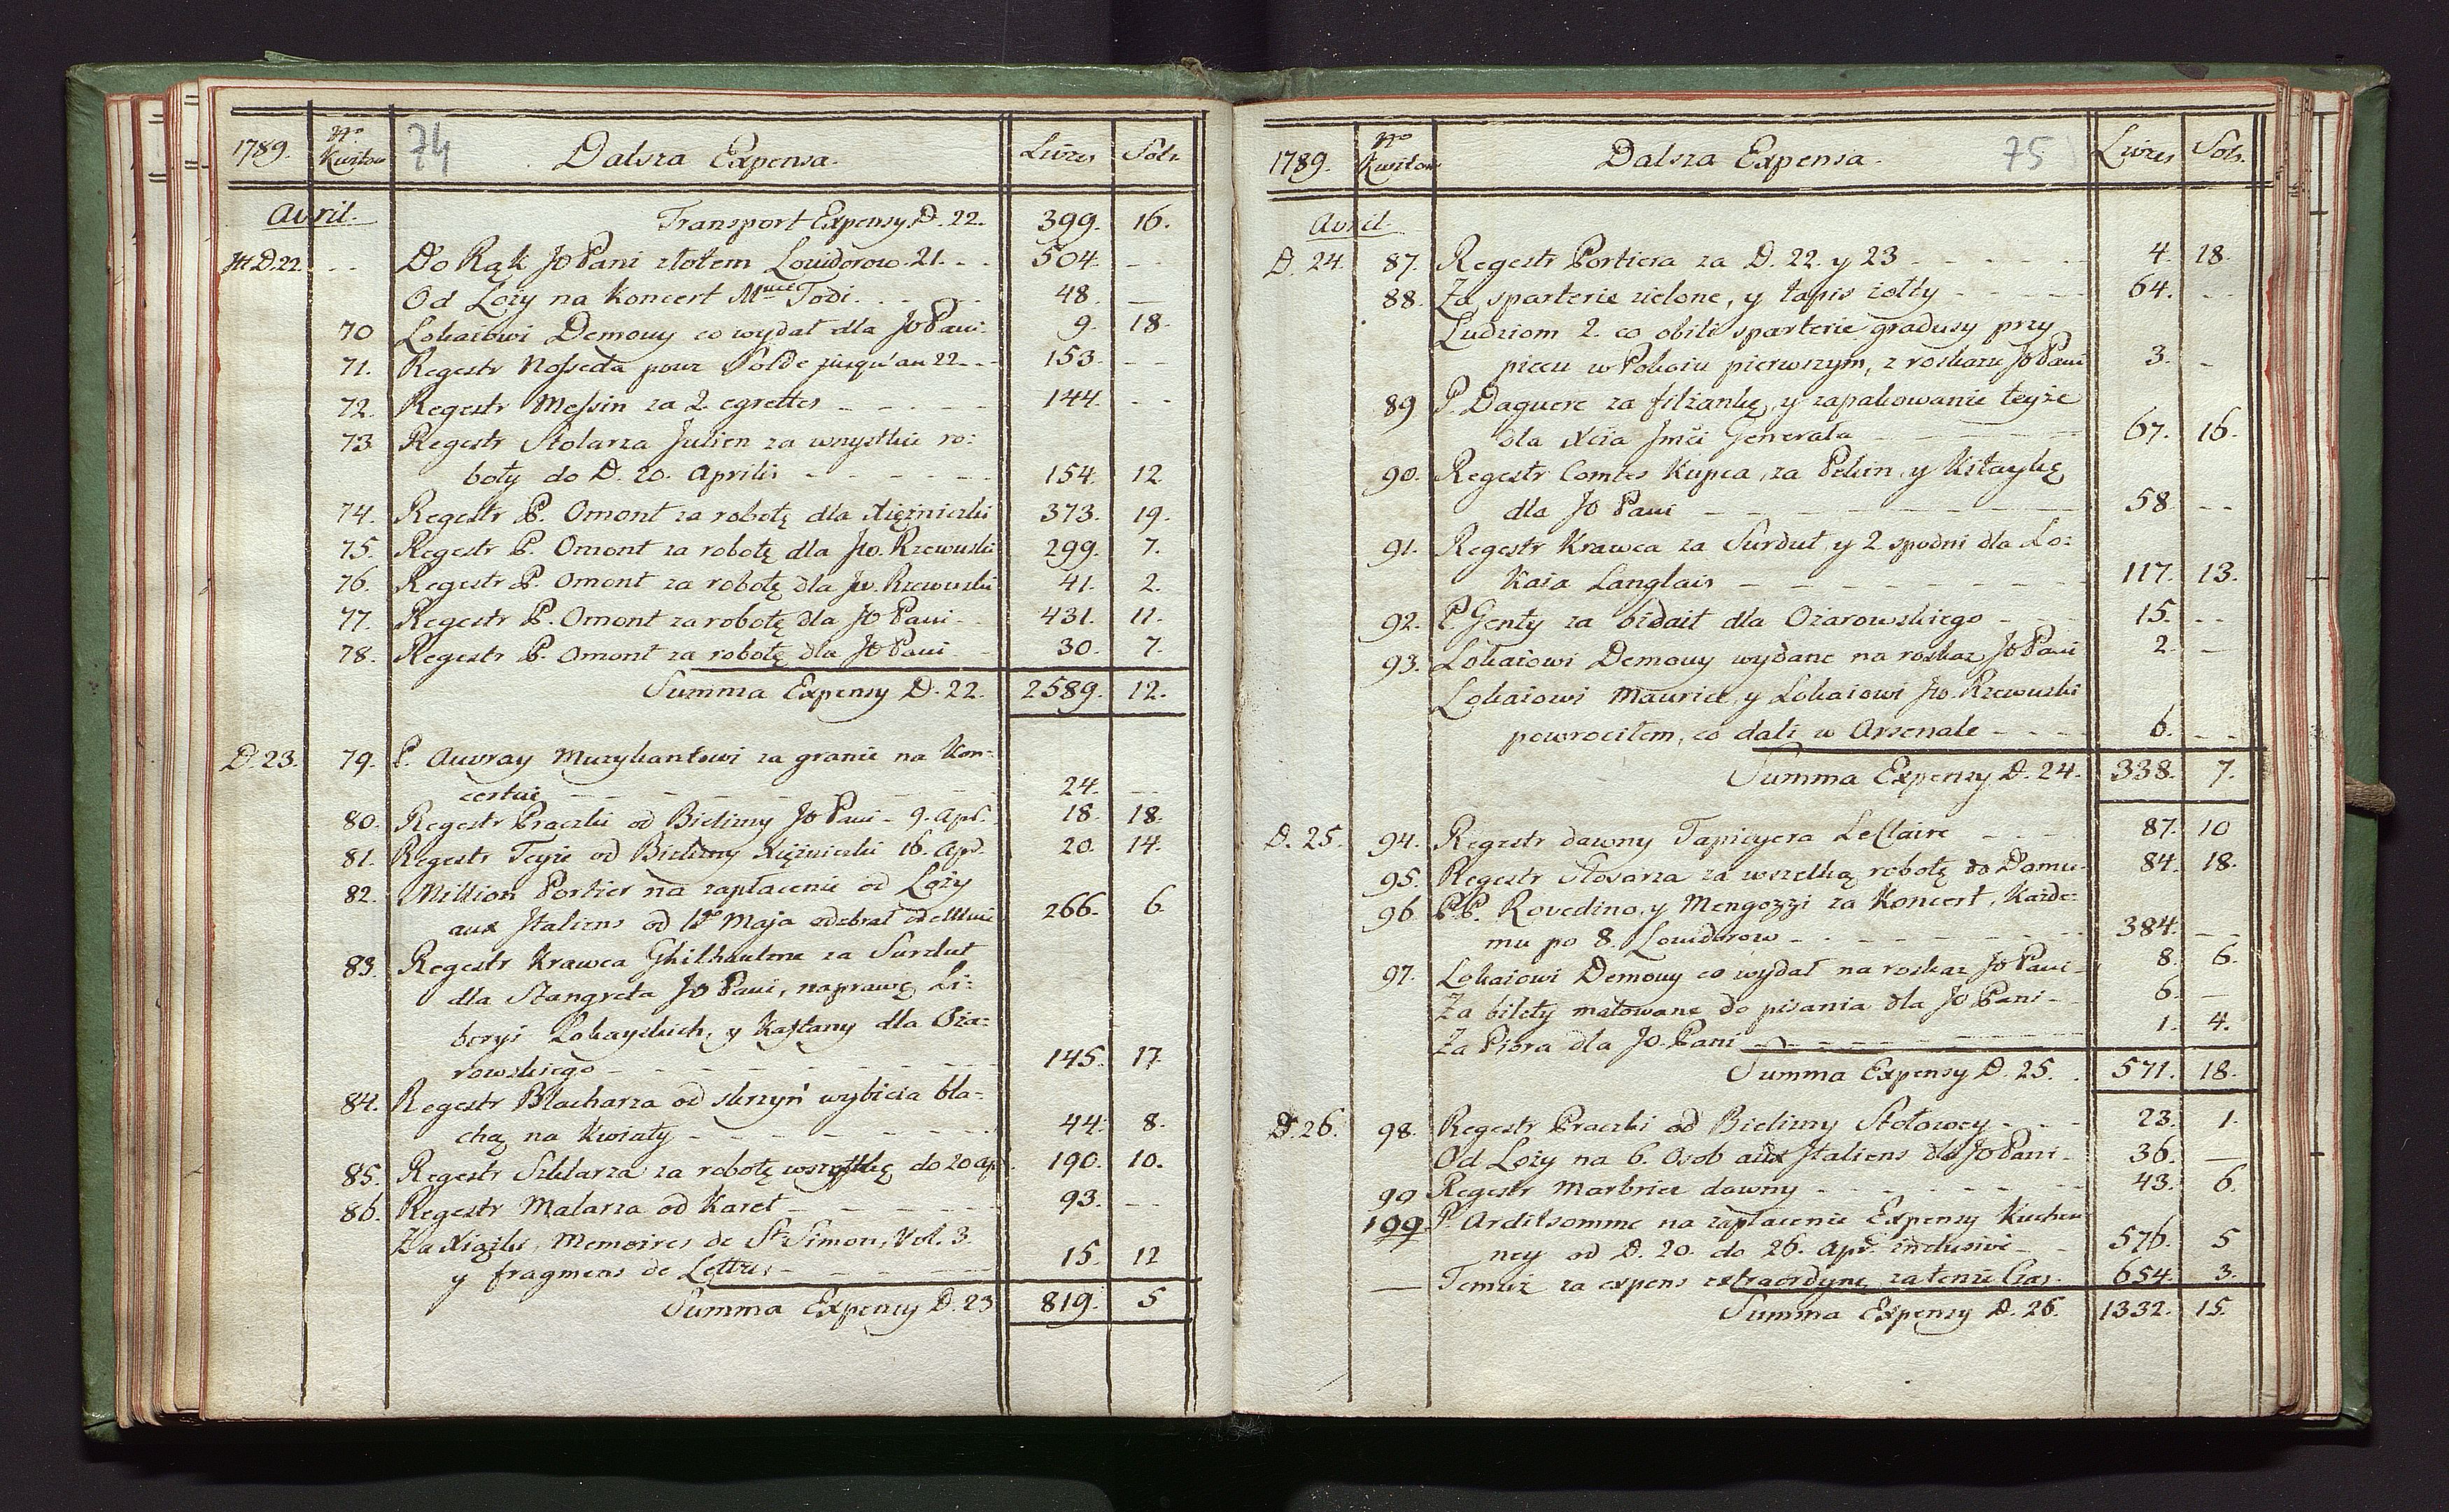 1789. No Kwitow 74 Dalsza Expensa. Livres Sols.
Avril. Transport Expensy D. 22. 399. 16.
It D. 22. - - Do Rąk JO Pani złotem Louidorow 21. - - 504. - -
Od Loży na Koncert Mme Todi. - - 48. —
70 Lokaiowi Demouy co wydał dla JO Pani. 9. 18.
71. Regestr Nosseda pour Solde jusqu'au 22. - - 153. - -
72. Regestr Messin za 2 egrettes - - - - 144. - -
73. Regestr Stolarza Julien za wszystkie ro:
boty do D. 20. Aprilis - - - - - 154. 12.
74. Regestr P. Omont za robotę dla Xiężniczki 373. 19.
75. Regestr P. Omont za robotę dla Jw. Rzewuski 299. 7.
76. Regestr P. Omont za robotę dla Jw. Rzewuski 41. 2.
77. Regestr P. Omont za robotę dla JO Pani - 431. 11.
78. Regestr P. Omont za robotę dla JO Pani - 30. 7.
Summa Expensy D. 22. 2589. 12.
D. 23. 79. P. Auvray Muzykantowi za granie na Kon=
certuie - - - - - 24. - -
80. Regestr Praczki od Bielizny JO Pani - 9. Apl. 18. 18.
81. Regestr Teyże od Bielizny Xiężniczki 16. Apl. 20. 14.
82. Million Portier na zapłacenie od Loży
aux Italiens od 1go Maja odebrał 266. 6.
83. Regestr Krawca Ghilhaulme za Surdut
dla Stangreta JO Pani, naprawę Li=
beryi Lokayskich, y Kaftany dla Oża=
rowskiego - - - - - 145. 17
84. Regestr Blacharza od skrzyń wybicia bla=
chą na Kwiaty - - - - - 44. 8.
85. Regestr Szklarza za robotę wszystkę do 20 ap. 190. 10.
86. Regestr Malarza od Karet - - - - 93. - -
Za Xiążki, Memoires de St Simon, Vol. 3.
y fragmens de Lettres - - - - 15. 12
Summa Expensy D. 23 819. 5
1789. No Kwitow Dalsza Expensa. 75 Livres Sols.
Avril.
D. 24. 87. Regestr Portiera za D. 22. y 23 - - - - 4. 18.
88. Za sparterie zielone, y tapis żołty - - - - 64. - -
Ludziom 2. co obili sparterie gradusy przy
piecu w Pokoiu pierwszym, z roskazu JO Pani 3. -
89 P. Daguere za filiżankę, y zapakowanie teyże
dla Xcia Jmci Generała - - - - 67. 16.
90. Regestr Comtes Kupca, za Pekin, y Wstążkę
dla JO Pani - - - - 58 - -
91. Regestr Krawca za Surdut, y 2 spodni dla Lo:
kaia Langlais - - - - 117. 13.
92. P. Genty za bidait dla Ożarowskiego - - 15. - -
93. Lokaiowi Demouy wydane na roskaz JO Pani 2. —
Lokaiowi Maurice, y Lokaiowi Jw. Rzewuski
powrociłem, co dali w Arsenale - - - - 6. - -
Summa Expensy D. 24. 338. 7.
D. 25. 94. Regestr dawny Tapicyera LeClaire - - - 87. 10
95. Regestr Slosarza za wszelką robotę do Domu - 84. 18.
96. P.P. Rovedino, y Mengozzi za Koncert, Każde:
mu po 8. Louidorow - - - - 384. - -
97. Lokaiowi Demouy co wydał na roskaz JO Pani - 8. 6.
Za bilety malowane do pisania dla JO Pani - 6. —
Za Piora dla JO. Pani - - - - 1. 4.
Summa Expensy D. 25. 571. 18.
D. 26. 98. Regestr Praczki od Bielizny Stołowey - - - 23. 1.
Od Loży na 6. Osob aux Italiens dla JO Pani - 36. —
99 Regestr Marbrier dawny - - - - 43. 6.
199. P. Ardilsomme na zapłacenie Expensy Kuchen
ney od D. 20. do 26. Apr. inclusive - - 576. 5
— Temuż za expens extraordynę za tenże Czas. 654. 3.
Summa Expensy D. 26. 1332. 15.